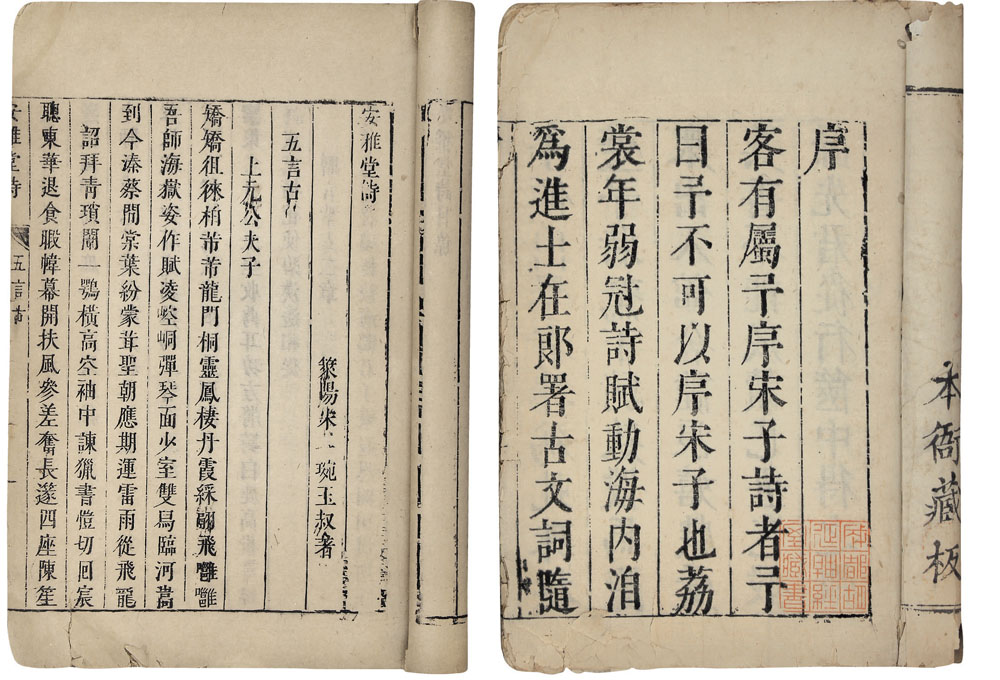 本衙藏板
序
客有屬予序宋子詩者予
曰予不可以序宋子也荔
裳年弱冠詩賦動海内洎
爲進士在郎署古文詞隨
安雅堂詩
萊陽宋琬玉叔著
五言古
上亢公夫子
矯矯徂徠柏芾芾龍門桐靈鳳棲丹霞綵翮飛雝雝
吾師海嶽姿作賦凌崆峒彈琴面少室雙舄臨河嵩
到今溱蔡間棠葉紛蒙茸聖朝應期運雷雨從飛龍
詔拜青瑣闈一鶚橫高空袖中諫獵書愷切回宸
聰東華退食暇幃幕開扶風參差奮長邃四座陳笙
安雅堂詩 五言古